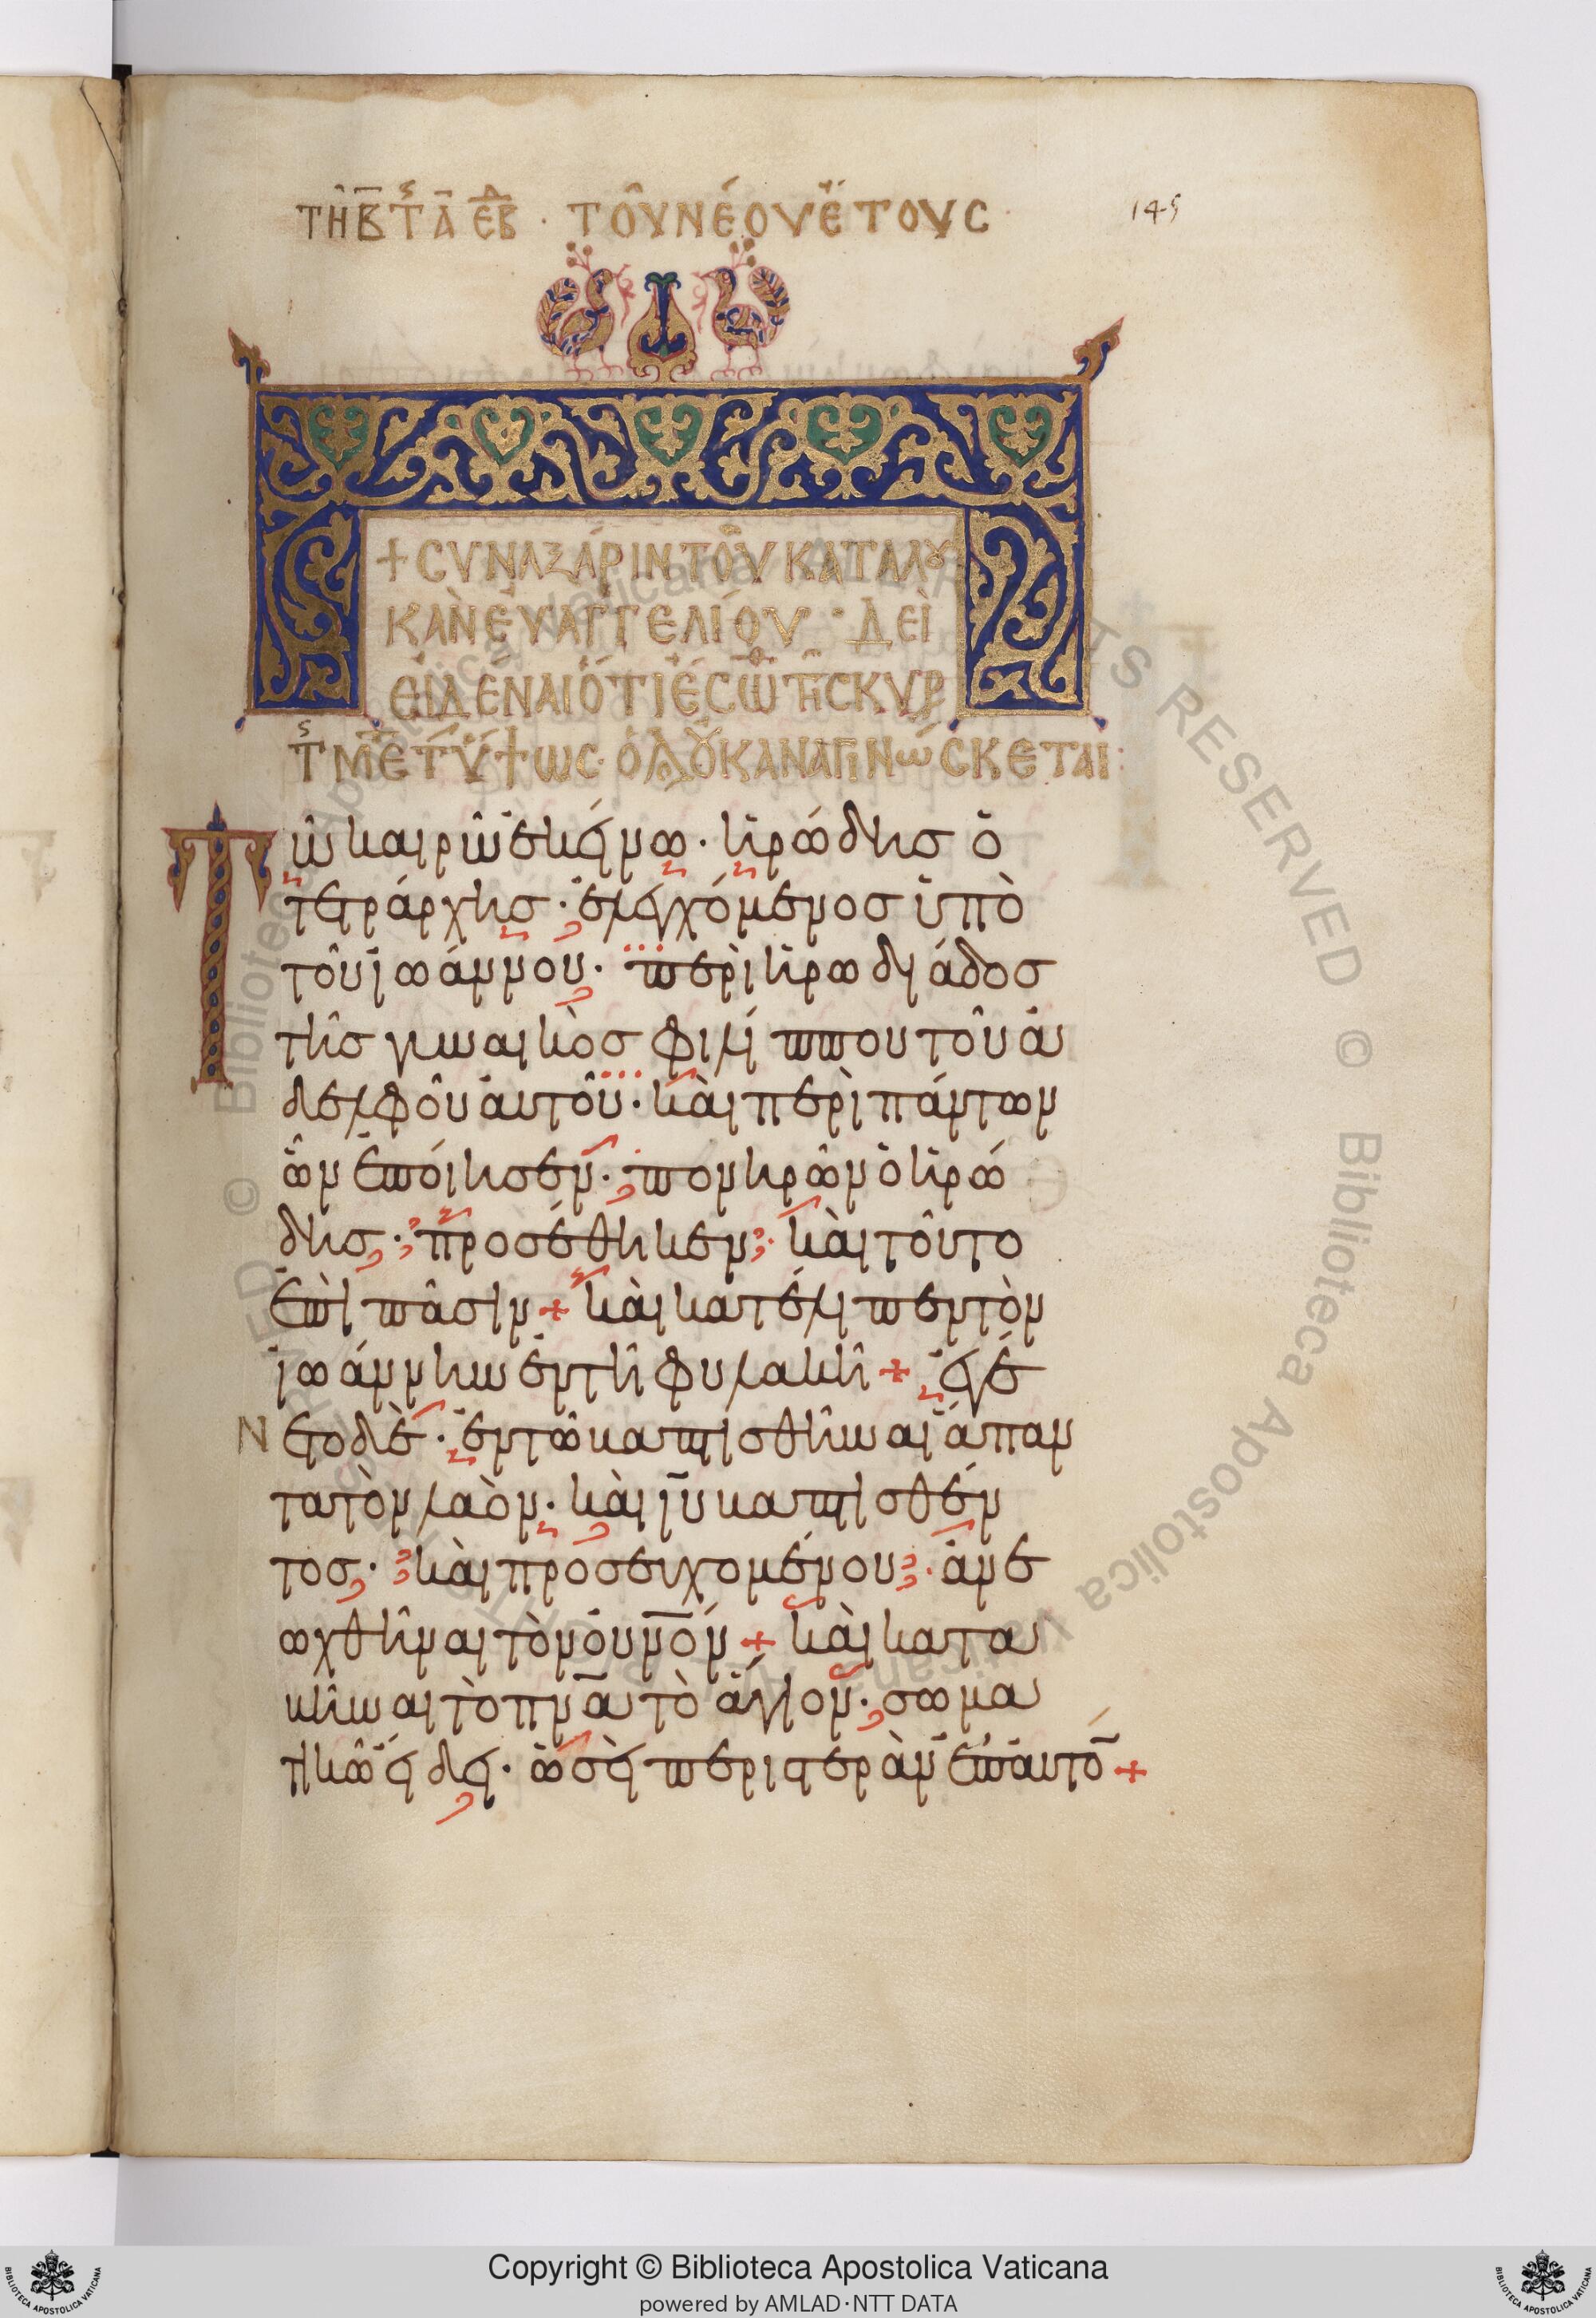 ΤΗ Β ΤΗΣ Α ΕΒΔ · ΤΟΥ ΝΕΟΥ ΕΤΟΥΣ
145
+ ΣΥΝΑΞΑΡΙΝ ΤΟΥ ΚΑΤΑ ΛΟΥ
ΚΑΝ ΕΥΑΓΓΕΛΙΟΥ · ΔΕΙ
ΕΙΔΕΝΑΙ ΟΤΙ
ΟΥΚ ΑΝΑΓΙΝΩΣΚΕΤΑΙ :
Τῶ καιρῶ ἐκείνω · ἡρώδης ὁ
τετράρχης · ἐλεγχόμενος ὑπὸ
τοῦ ἰωάννου · περὶ ἡρωδιάδος
τῆς γυναικὸς φιλίππου τοῦ ἀ
δελφοῦ αὐτοῦ · καὶ περὶ πάντων
ὧν ἐποίησεν · πονηρῶν ὁ ἡρώ
δης · προσέθηκεν · καὶ τοῦτο
ἐπὶ πᾶσιν + καὶ κατέκλεισεν τὸν
ἰωάννην ἐν τῆ φυλακῆ + ἐγέ
Νετο δὲ · ἐν τῶ βαπτισθῆναι ἅπαν
τα τὸν λαὸν · καὶ ἰυ βαπτισθέν
τος · καὶ προσευχομένου · ἀνε
ωχθῆναι τὸν οὐνὸν + καὶ κατα
βῆναι τὸ πνα τὸ ἅγιον · σωμα
τικῶ εἴδει · ὡσεὶ περιστερὰν ἐπ αὐτὸ +
Copyright © Biblioteca Apostolica Vaticana
powered by AMLAD·NTT DATA